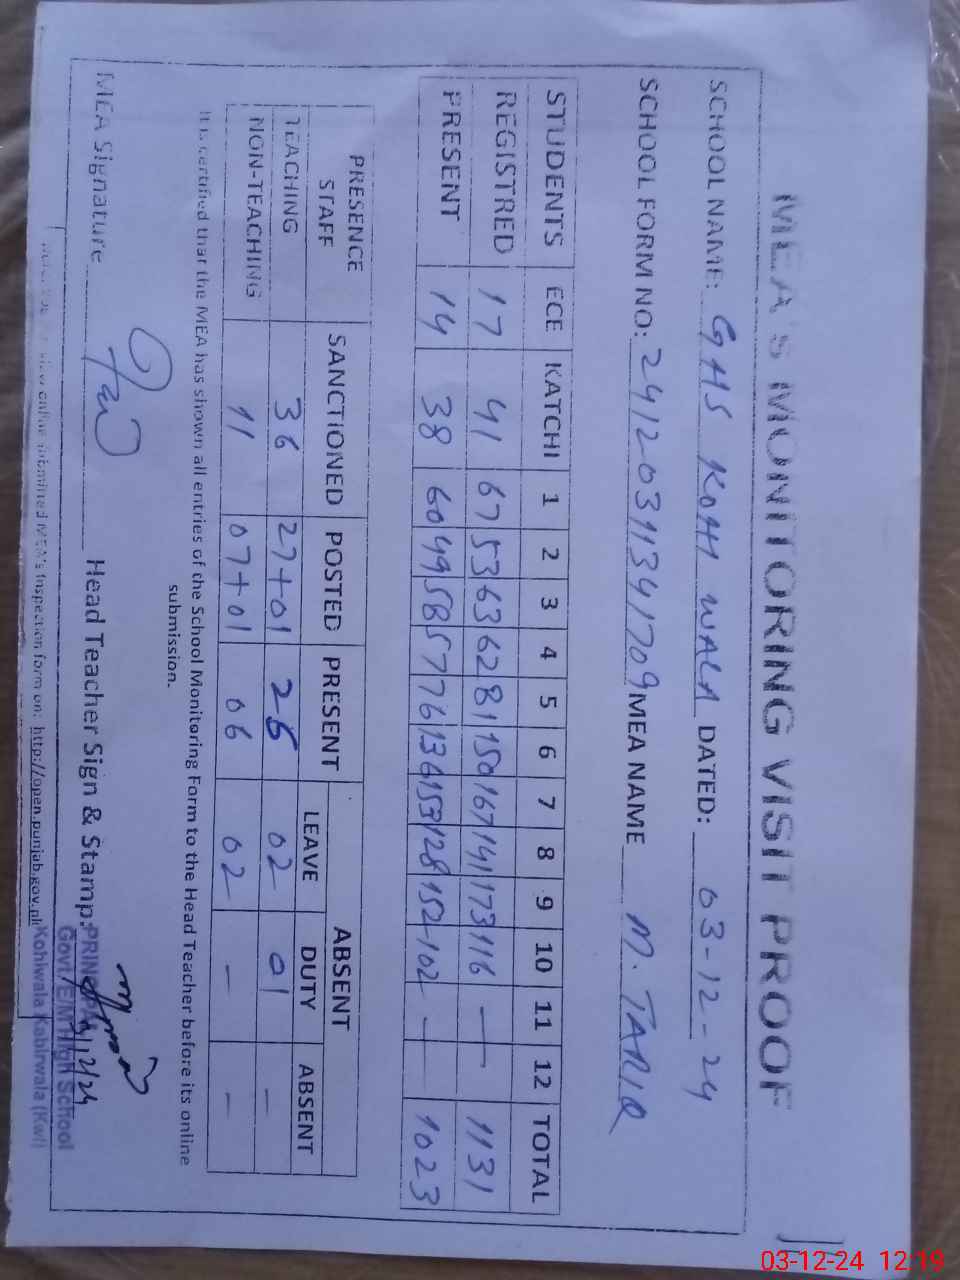 MEA'S MONITORING VISIT PROOF
SCHOOL NAME: GHS KOHI WALA DATED: 03-12-24
SCHOOL FORM NO: 24120311341709 MEA NAME M. TARIQ
STUDENTS ECE KATCHI 1 2 3 4 5 6 7 8 9 10 11 12 TOTAL
REGISTRED 17 41 67 53 63 62 81 150 167 141 173 116 — 1131
PRESENT 14 38 60 49 58 57 76 136 153 128 152 102 — 1023
PRESENCE STAFF SANCTIONED POSTED PRESENT ABSENT
LEAVE DUTY ABSENT
TEACHING 36 27+01 25 02 01 —
NON-TEACHING 11 07+01 06 02 — —
It is certified that the MEA has shown all entries of the School Monitoring Form to the Head Teacher before its online
submission.
MEA Signature Head Teacher Sign & Stamp:
PRINCIPAL
Govt. E/M High School
Kohiwala Kabirwala (Kwl)
view online submitted MEA's Inspection form on: http://open.punjab.gov.pk
03-12-24 12:19